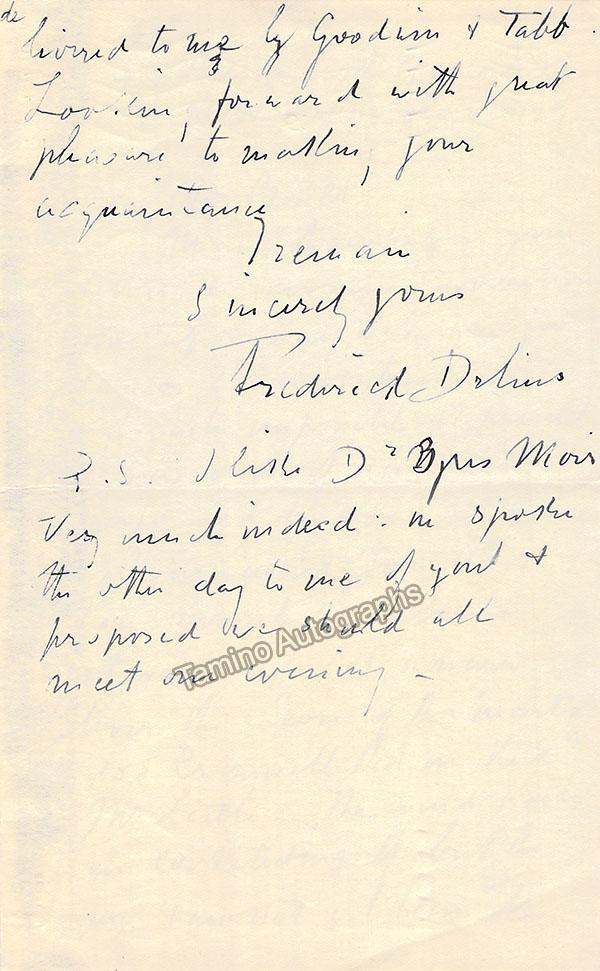 de
livred to me by Goodwin & Tabb.
Looking forward with great
pleasure to making your
acquaintance
I remain
Sincerely yours
Frederick Delius
P.S. I like Dr Byres Moir
Very much indeed: he spoke
the other day to me of you &
proposed we should all
meet one evening –
Tamino Autographs